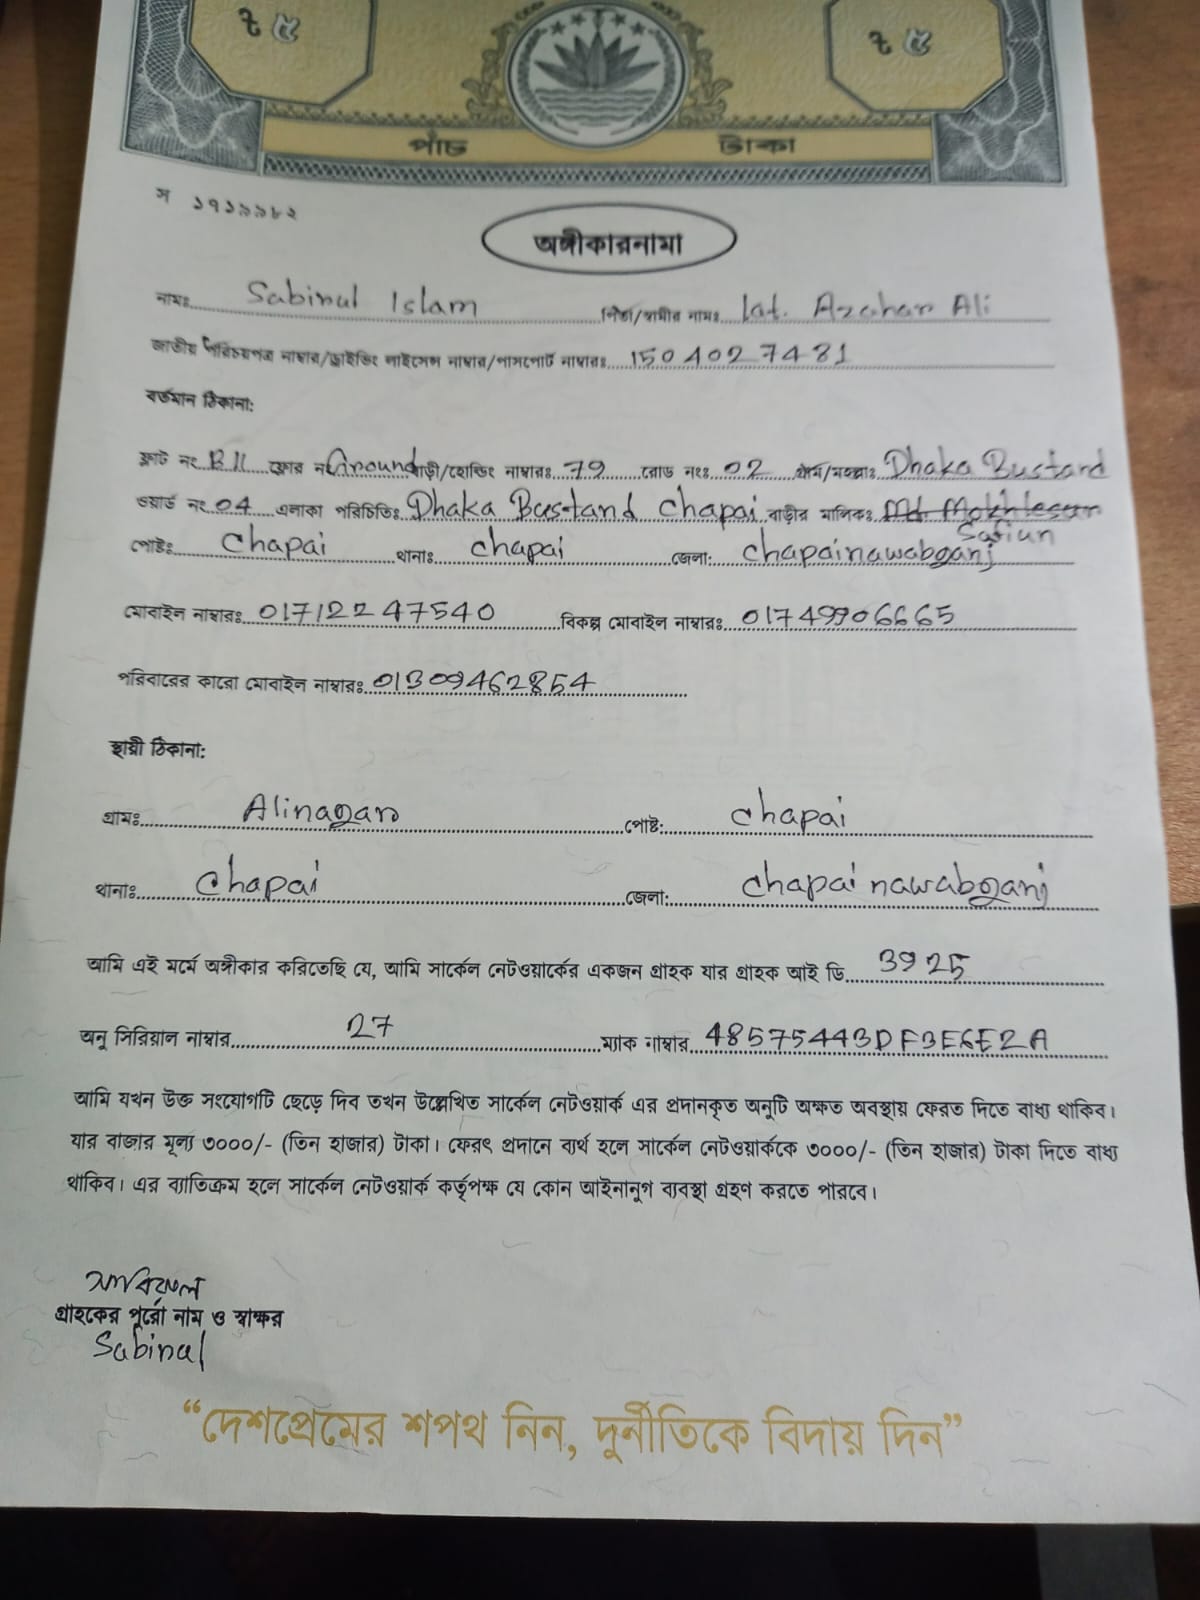 ৳ ৫ ৳ ৫
পাঁচ টাকা
স ১৭১৯৯৮২
অঙ্গীকারনামা
নামঃ Sabirul Islam পিতা/স্বামীর নামঃ Lat. Azahar Ali
জাতীয় পরিচয়পত্র নাম্বার/ড্রাইভিং লাইসেন্স নাম্বার/পাসপোর্ট নাম্বারঃ 1504027481
বর্তমান ঠিকানা:
ফ্লাট নং B11 ফ্লোর নং Ground বাড়ী/হোল্ডিং নাম্বারঃ 79 রোড নংঃ 02 গ্রাম/মহল্লাঃ Dhaka Bustard
ওয়ার্ড নং 04 এলাকা পরিচিতিঃ Dhaka Bustand Chapai বাড়ীর মালিকঃ Md Mokhlesur
Safiun
পোষ্টঃ Chapai থানাঃ Chapai জেলা: Chapainawabganj
মোবাইল নাম্বারঃ 01712247540 বিকল্প মোবাইল নাম্বারঃ 01749906665
পরিবারের কারো মোবাইল নাম্বারঃ 01309462854
স্থায়ী ঠিকানা:
গ্রামঃ Alinagar পোষ্ট: Chapai
থানাঃ Chapai জেলা: Chapai nawabganj
আমি এই মর্মে অঙ্গীকার করিতেছি যে, আমি সার্কেল নেটওয়ার্কের একজন গ্রাহক যার গ্রাহক আই ডি 3925
অনু সিরিয়াল নাম্বার 27 ম্যাক নাম্বার 48575443DF3E6E2A
আমি যখন উক্ত সংযোগটি ছেড়ে দিব তখন উল্লেখিত সার্কেল নেটওয়ার্ক এর প্রদানকৃত অনুটি অক্ষত অবস্থায় ফেরত দিতে বাধ্য থাকিব।
যার বাজার মূল্য ৩০০০/- (তিন হাজার) টাকা। ফেরৎ প্রদানে ব্যর্থ হলে সার্কেল নেটওয়ার্ককে ৩০০০/- (তিন হাজার) টাকা দিতে বাধ্য
থাকিব। এর ব্যাতিক্রম হলে সার্কেল নেটওয়ার্ক কর্তৃপক্ষ যে কোন আইনানুগ ব্যবস্থা গ্রহণ করতে পারবে।
সাবিরুল
গ্রাহকের পুরো নাম ও স্বাক্ষর
Sabirul
“দেশপ্রেমের শপথ নিন, দুর্নীতিকে বিদায় দিন”